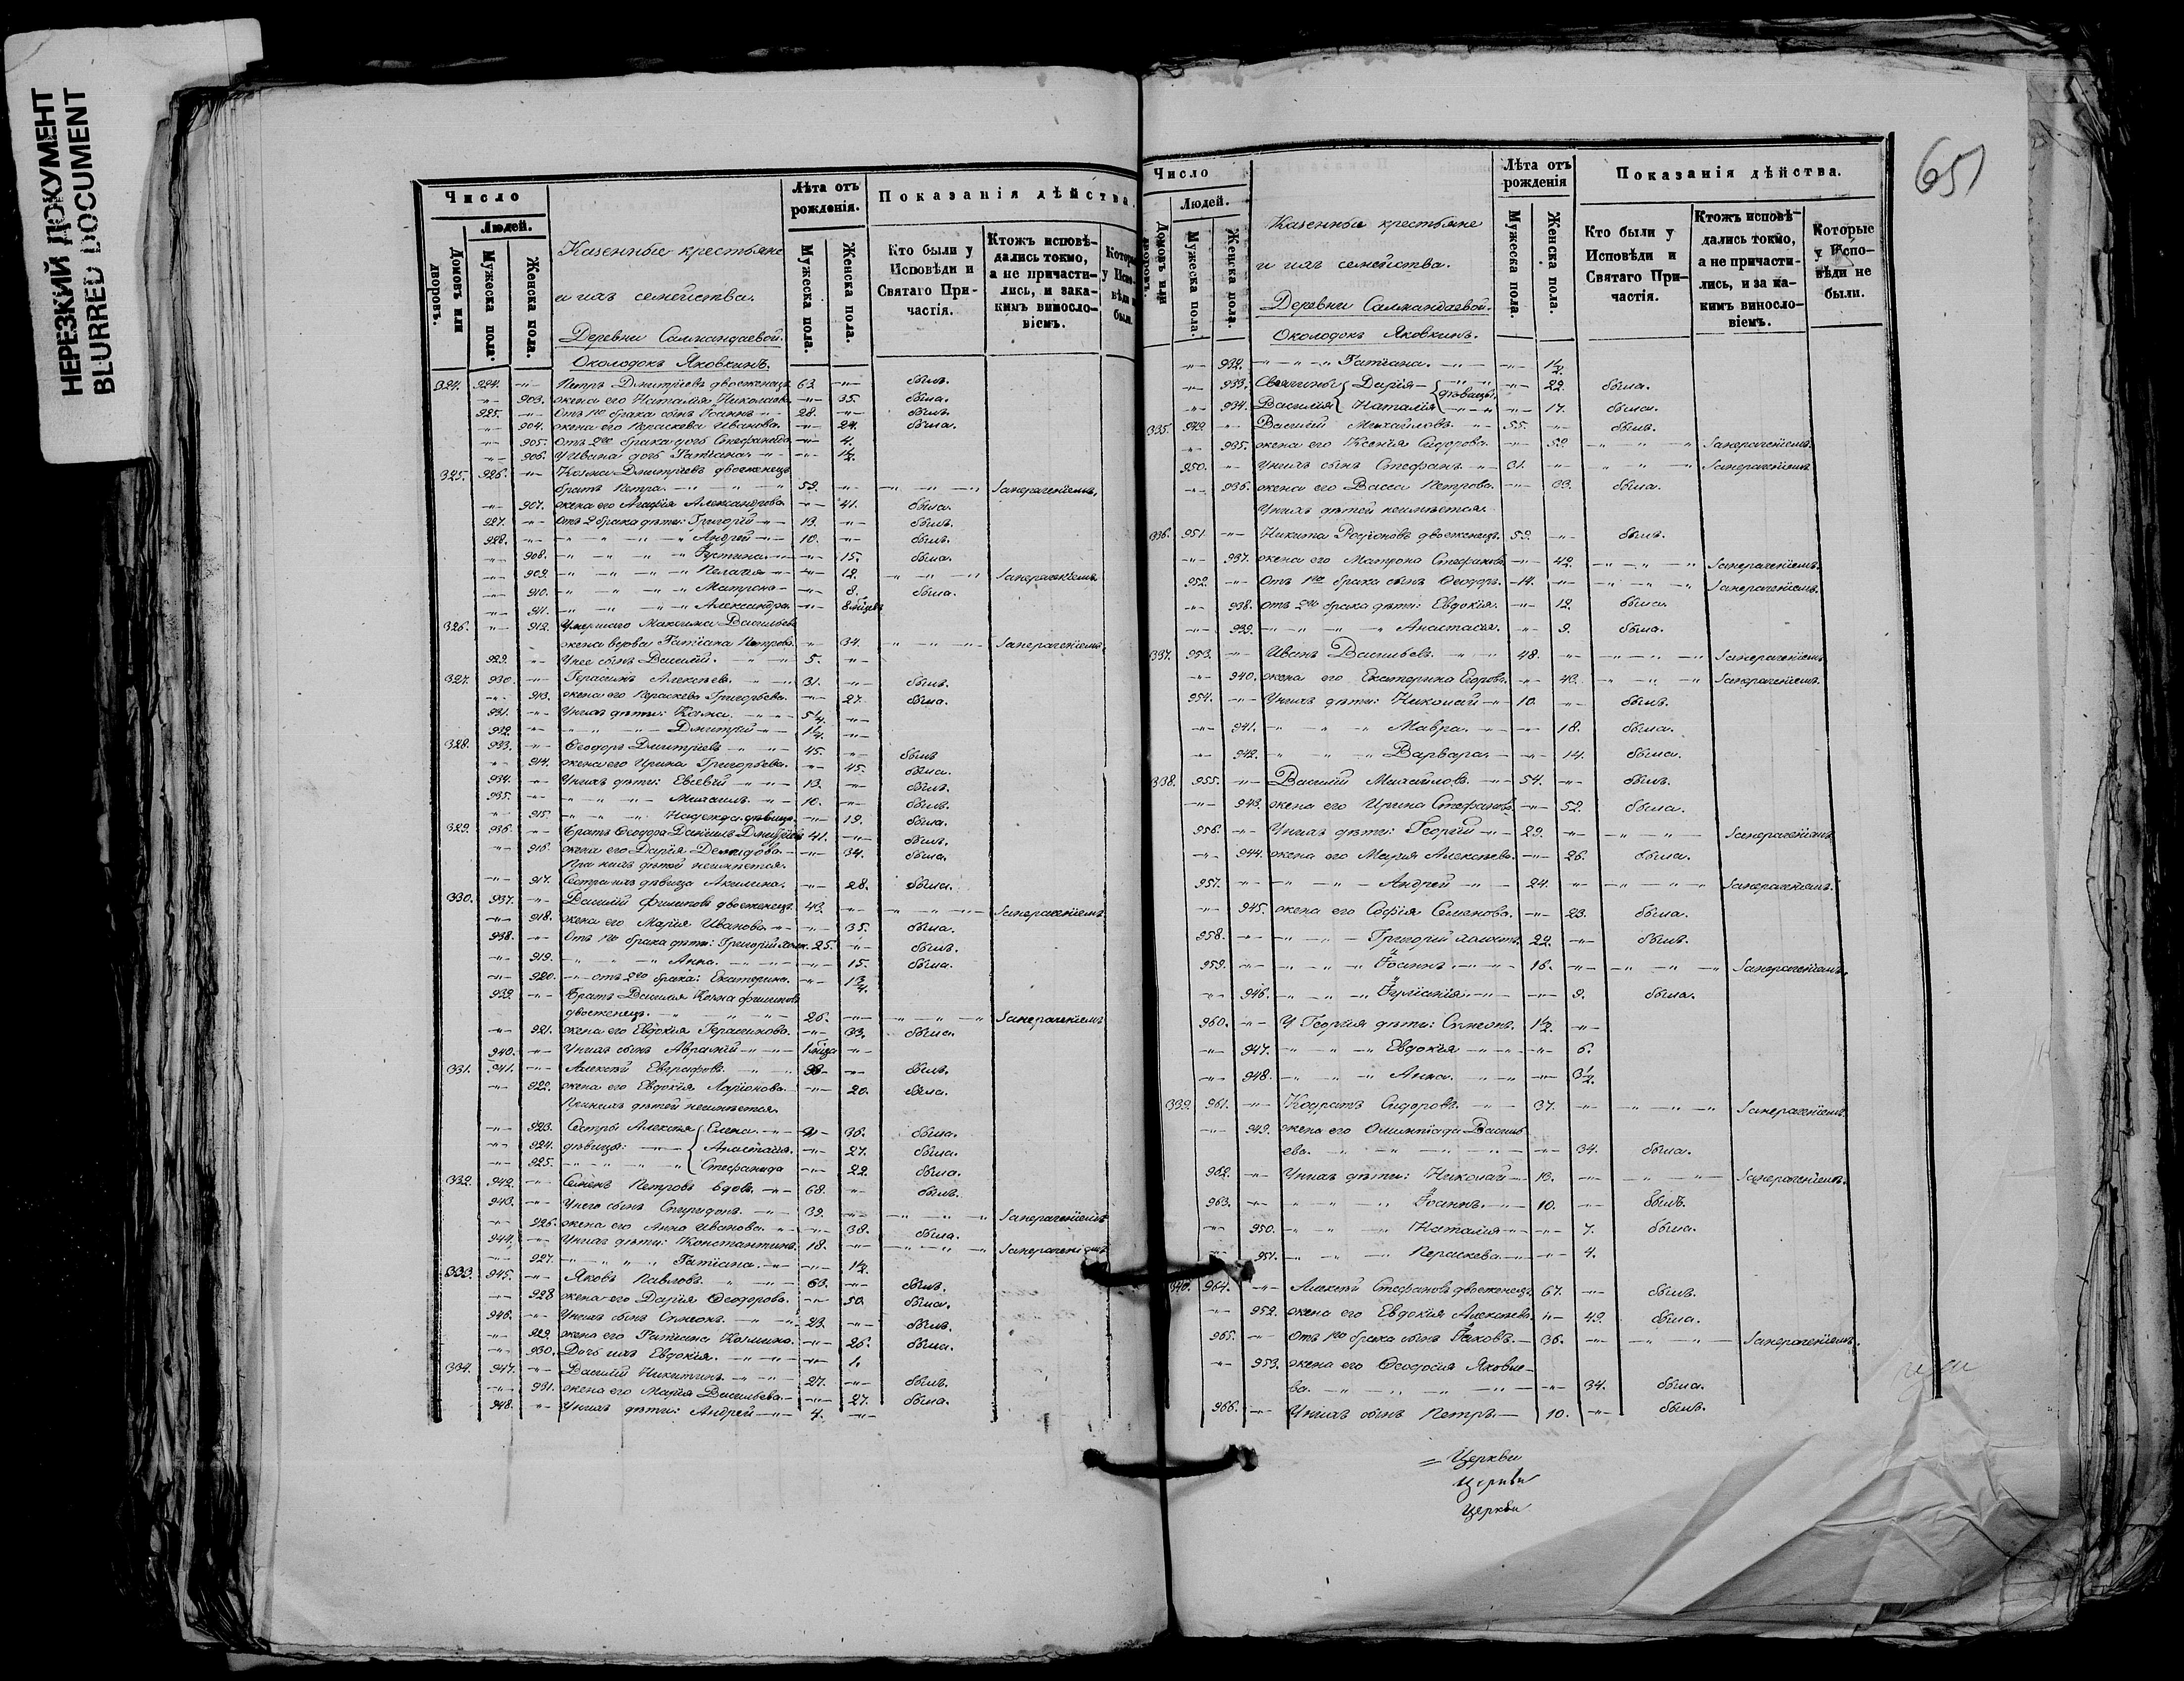 НЕРЕЗКИЙ ДОКУМЕНТ
BLURRED DOCUMENT
Число
Людей.
Домовъ или дворовъ.
Мужеска пола.
Женска пола.
Казенные крестьяне
и ихъ семейства.
Деревни Салмандаевой.
Околодокъ Яковкинъ.
Лѣта отъ рожденія.
Мужеска пола.
Женска пола.
Показанія дѣйства.
Кто были у Исповѣди и Святаго Причастія.
Ктожъ исповѣдались токмо, а не причастились, и за какимъ винословіемъ.
324. 924. -"- Петръ Дмитріевъ двоеженецъ 63. -"- былъ.
-"- 903. жена его Наталія Николаева -"- 35. была.
925. -"- Отъ 1го брака сынъ Іоаннъ -"- 28. -"- былъ.
-"- 904. жена его Параскева Иванова. -"- 24. была.
-"- 905. Отъ 2го брака дочь Стефанида -"- 4.
-"- 906. У Ивана дочь Татіана -"- 1/2.
325. 926. -"- Козма Дмитріевъ двоеженецъ
братъ Петра. 53. -"- занерачениемъ.
-"- 907. жена его Агафія Александрова -"- 41. была.
927. -"- Отъ 2 брака дѣти: Григорій -"- 13. -"- былъ.
928. -"- Андрей -"- 10. -"- былъ.
-"- 908. Іустина. -"- 15. была.
-"- 909. Пелагія -"- 12. занерачениемъ.
-"- 910. Матрона -"- 8. была.
-"- 911. Александра -"- 8 мѣсяц
326. -"- 912. Умершаго Максима Васильева
жена вдова Татіана Петрова. -"- 34. занерачениемъ.
929. -"- У нее сынъ Василій. 5. -"-
327. 930. -"- Герасимъ Алексѣевъ. 31. -"- былъ.
-"- 913. жена его Параскева Григорьева. -"- 27. была.
931. -"- У нихъ дѣти: Козма. 5 1/4. -"-
932. -"- Дмитрій -"- 1 1/4. -"-
328. 933. -"- Ѳеодоръ Дмитріевъ 45. -"- былъ
-"- 914. жена его Ирина Григорьева. -"- 45. была.
934. -"- У нихъ дѣти: Евсевій 13. -"- былъ.
935. -"- Михаилъ 10. -"- былъ.
-"- 915. Надежда дѣвица -"- 19. была.
329. 936. -"- Братъ Ѳеодора Даніилъ Дмитріевъ 41. -"- былъ.
-"- 916. жена его Дарія Демидова. -"- 34. была.
При нихъ дѣтей неимѣется.
-"- 917. Сестра ихъ дѣвица Акилина. -"- 28. была.
330. 937. -"- Василій Филиповъ двоеженецъ. 43. -"- занерачениемъ
-"- 918. жена его Марія Иванова. -"- 35. была.
938. -"- Отъ 1го брака дѣти: Григорій холос. 25. -"- былъ.
-"- 919. Анна. -"- 15. была.
-"- 920. отъ 2го брака: Екатерина. -"- 1 3/4.
939. -"- Братъ Василія Козма Филиповъ
двоеженецъ. 26. -"- занерачениемъ
-"- 921. жена его Евдокія Герасимова. -"- 33. была.
940. -"- У нихъ сынъ Аврамій -"-
331. 941. -"- Алексѣй Евграфовъ -"- былъ.
-"- 922. жена его Евдокія Ларіонова. -"- 20. была.
При нихъ дѣтей неимѣется.
-"- 923. Сестры Алексѣя Елена. -"- 36. была.
-"- 924. дѣвицы: Анастасія. -"- 27. была.
-"- 925. Стефанида -"- 22. была.
332. 942. -"- Семенъ Петровъ вдов. 68. -"- былъ.
943. -"- У него сынъ Спиридонъ. 39. -"- занерачениемъ
-"- 926. жена его Анна Иванова. -"- 38. была.
944. -"- У нихъ дѣти: Константинъ. 18. -"- занерачениемъ
-"- 927. Татіана. -"- 1/2.
333. 945. -"- Яковъ Павловъ. 63. -"- былъ.
-"- 928 жена его Дарія Ѳеодорова. -"- 50. была.
946. -"- У нихъ сынъ Сѵмеонъ. 23. -"- былъ.
-"- 929. жена его Татіана Козмина. -"- 26. была.
-"- 930. Дочь ихъ Евдокія. -"- 1.
334. 947. -"- Василій Никитинъ. 27. -"- былъ.
-"- 931. жена его Марія Васильева. -"- 27. была.
948. -"- У нихъ дѣти: Андрей 4. -"-
651
Число
Людей.
Домовъ или дворовъ.
Мужеска пола.
Женска пола.
Казенные крестьяне
и ихъ семейства.
Деревни Салмандаевой.
Околодокъ Яковкинъ.
Лѣта отъ рожденія
Мужеска пола.
Женска пола.
Показанія дѣйства.
Кто были у Исповѣди и Святаго Причастія.
Ктожъ исповѣдались токмо, а не причастились, и за какимъ винословіемъ.
Которые у Исповѣди не были.
-"- 932. Татіана. -"- 1/2.
-"- 933. Своячины Дарія дѣвицы. -"- 22. была.
-"- 934. Василія Наталія -"- 17. была.
335. 949. -"- Василій Михайловъ. 55. -"- былъ.
-"- 935. жена его Ксенія Сидорова. -"- 52. занерачениемъ.
950. -"- У нихъ сынъ Стефанъ. 31. -"- занерачениемъ
-"- 936. жена его Васса Петрова. -"- 33. была.
У нихъ дѣтей неимѣется.
336. 951. -"- Никита Родіоновъ двоеженецъ. 53. -"- былъ.
-"- 937. жена его Матрона Стефанова. -"- 42. занерачениемъ.
952. -"- Отъ 1го брака сынъ Ѳеодоръ. 14. -"- занерачениемъ.
-"- 938. отъ 2го брака дѣти: Евдокія. -"- 12. была.
-"- 939. Анастасія. -"- 9. была.
337. 953. -"- Иванъ Васильевъ. 48. -"- занерачениемъ
-"- 940. жена его Екатерина Егорова. -"- 43. занерачениемъ.
954. -"- У нихъ дѣти: Николай 10. -"- былъ.
-"- 941. Мавра. -"- 18. была.
-"- 942. Варвара. -"- 14. была.
338. 955. -"- Василій Михайловъ. 54. -"- былъ.
-"- 943. жена его Ирина Стефанова. -"- 52. была.
956. -"- У нихъ дѣти: Георгій 29. -"- занерачениемъ
-"- 944. жена его Марія Алексѣева. -"- 26. была.
957. -"- Андрей 24. -"- занерачениемъ.
-"- 945. жена его Софія Семенова. -"- 23. была.
958. -"- Григорій холостъ. 22. -"- былъ.
959. -"- Іоаннъ. 16. -"- занерачениемъ.
-"- 946. Іуліанія. -"- 9. была.
960. -"- У Георгія дѣти: Сѵмеонъ. 1/2. -"-
-"- 947. Евдокія -"- 6.
-"- 948. Анна. -"- 3 1/2.
339. 961. -"- Кодратъ Сидоровъ. 37. -"- занерачениемъ
-"- 949. жена его Олимпіада Василь
ева. -"- 34. была.
962. -"- У нихъ дѣти: Николай 13. -"- занерачениемъ.
963. -"- Іоаннъ. 10. -"- былъ.
-"- 950. Наталія -"- 7. была.
-"- 951. Параскева. -"- 4.
340. 964. -"- Алексѣй Стефановъ двоеженецъ. 67. -"- былъ.
-"- 952. жена его Евдокія Алексѣева. -"- 49. была.
965. -"- Отъ 1го брака сынъ Іаковъ. 36. -"- занерачениемъ.
-"- 953. жена его Ѳеодосія Яковле-
ва. -"- 34. была.
966. -"- У нихъ сынъ Петръ. 10. -"- былъ.
= Церкви
Церкви
Церкви